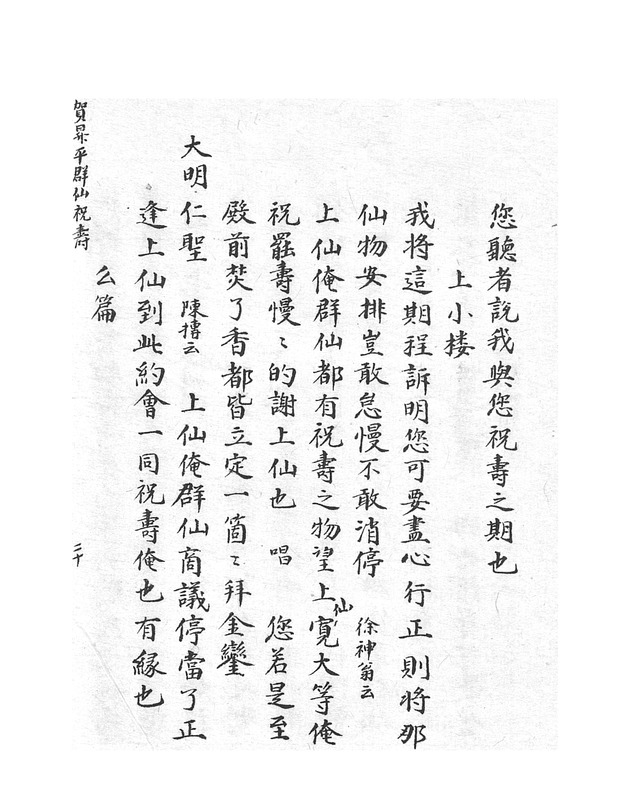 您聽者說我與您祝壽之期也
上小楼
我將這期程訴明您可要盡心行正則將那
仙物安排豈敢怠慢不敢消停 徐神翁云
上仙俺群仙都有祝壽之物望上仙寛大等俺
祝罷壽慢〻的謝上仙也 唱 您若是至
殿前焚了香都皆立定一箇〻拜金鑾
大明仁聖 陳摶云 上仙俺群仙商議停當了正
逢上仙到此約會一同祝壽俺也有緣也
么篇
賀昇平群仙祝壽
三十